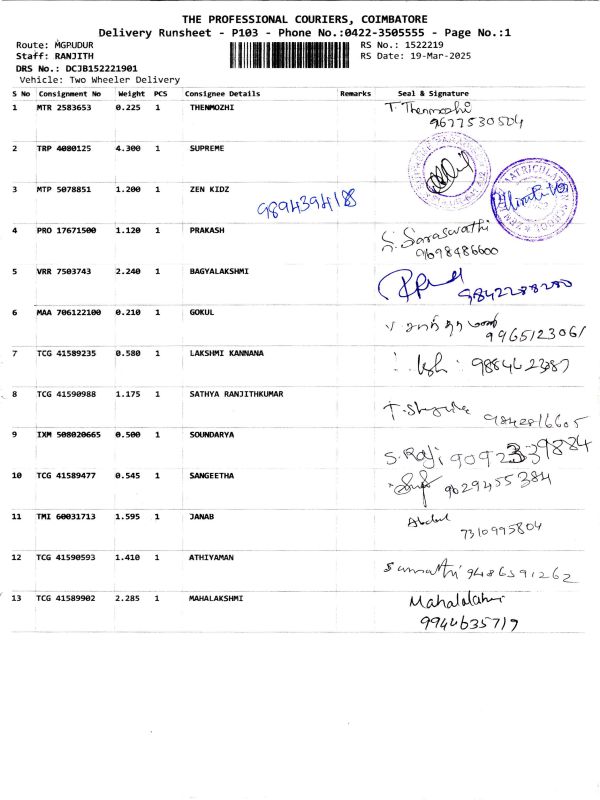 THE PROFESSIONAL COURIERS, COIMBATORE
Delivery Runsheet - P103 - Phone No.:0422-3505555 - Page No.:1
Route: MGPUDUR RS No.: 1522219
Staff: RANJITH RS Date: 19-Mar-2025
DRS No.: DCJB152221901
Vehicle: Two Wheeler Delivery
S No Consignment No Weight PCS Consignee Details Remarks Seal & Signature
1 MTR 2583653 0.225 1 THENMOZHI T. Thenmozhi
9677530504
2 TRP 4080125 4.300 1 SUPREME
3 MTP 5078851 1.200 1 ZEN KIDZ
9894394188
4 PRO 17671500 1.120 1 PRAKASH S. Saraswathi
9698486600
5 VRR 7503743 2.240 1 BAGYALAKSHMI
9842288280
6 MAA 706122100 0.210 1 GOKUL
9965123061
7 TCG 41589235 0.580 1 LAKSHMI KANNANA
9884462387
8 TCG 41590988 1.175 1 SATHYA RANJITHKUMAR
9842816605
9 IXM 508020665 0.500 1 SOUNDARYA
S. Raji 9092339884
10 TCG 41589477 0.545 1 SANGEETHA
9029455384
11 TMI 60031713 1.595 1 JANAB Abdul
7310995804
12 TCG 41590593 1.410 1 ATHIYAMAN
Sumathi 9486591262
13 TCG 41589902 2.285 1 MAHALAKSHMI
9944635719